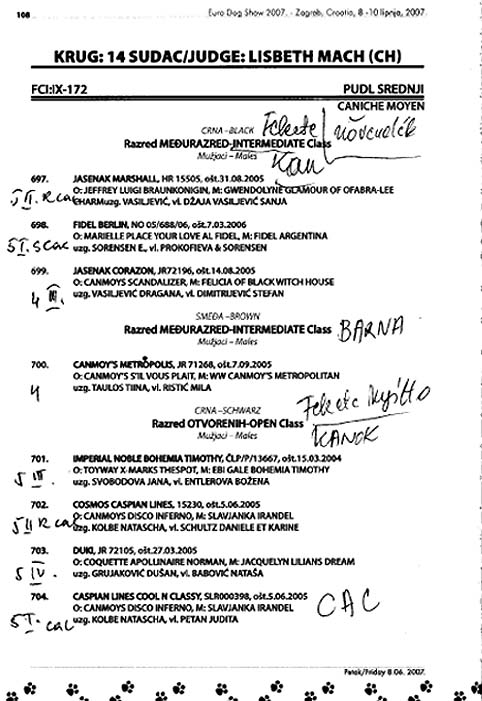 108
Euro Dog Show 2007. - Zagreb, Croatia, 8 -10 lipnja, 2007.
KRUG: 14 SUDAC/JUDGE: LISBETH MACH (CH)
FCI:IX-172 PUDL SREDNJI
CANICHE MOYEN
CRNA -BLACK Fekete növendék
Razred MEĐURAZRED-INTERMEDIATE Class
Mužjaci - Males Kan
697. JASENAK MARSHALL, HR 15505, ošt.31.08.2005
O: JEFFREY LUIGI BRAUNKONIGIN, M: GWENDOLYNE GLAMOUR OF OFABRA-LEE
5 II. R cac CHARMuzg. VASILJEVIĆ, vl. DŽAJA VASILJEVIĆ SANJA
698. FIDEL BERLIN, NO 05/688/06, ošt.7.03.2006
O: MARIELLE PLACE YOUR LOVE AL FIDEL, M: FIDEL ARGENTINA
5 I. S cac uzg. SORENSEN E., vl. PROKOFIEVA & SORENSEN
699. JASENAK CORAZON, JR72196, ošt.14.08.2005
O: CANMOYS SCANDALIZER, M: FELICIA OF BLACK WITCH HOUSE
4 III. uzg. VASILJEVIĆ DRAGANA, vl. DIMITRIJEVIĆ STEFAN
SMEĐA -BROWN
Razred MEĐURAZRED-INTERMEDIATE Class BARNA
Mužjaci - Males
700. CANMOY'S METROPOLIS, JR 71268, ošt.7.09.2005
O: CANMOY'S S'IL VOUS PLAIT, M: WW CANMOY'S METROPOLITAN
4 uzg. TAULOS TIINA, vl. RISTIĆ MILA
CRNA -SCHWARZ Fekete Nyitto
Razred OTVORENIH-OPEN Class
Mužjaci - Males KANOK
701. IMPERIAL NOBLE BOHEMIA TIMOTHY, ČLP/P/13667, ošt.15.03.2004
O: TOYWAY X-MARKS THESPOT, M: EBI GALE BOHEMIA TIMOTHY
5 III. uzg. SVOBODOVA JANA, vl. ENTLEROVA BOŽENA
702. COSMOS CASPIAN LINES, 15230, ošt.5.06.2005
O: CANMOYS DISCO INFERNO, M: SLAVJANKA IRANDEL
5 II R cac uzg. KOLBE NATASCHA, vl. SCHULTZ DANIELE ET KARINE
703. DUKI, JR 72105, ošt.27.03.2005
O: COQUETTE APOLLINAIRE NORMAN, M: JACQUELYN LILIANS DREAM
5 IV. uzg. GRUJAKOVIĆ DUŠAN, vl. BABOVIĆ NATAŠA
704. CASPIAN LINES COOL N CLASSY, SLR000398, ošt.5.06.2005
O: CANMOYS DISCO INFERNO, M: SLAVJANKA IRANDEL CAC
5 I. cac uzg. KOLBE NATASCHA, vl. PETAN JUDITA
Petak/Friday 8.06. 2007.